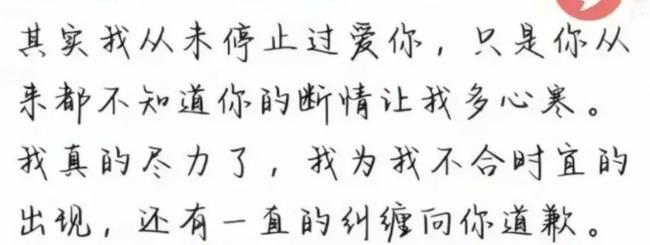 其实我从未停止过爱你，只是你从
来都不知道你的断情让我多心寒。
我真的尽力了，我为我不合时宜的
出现，还有一直的纠缠向你道歉。